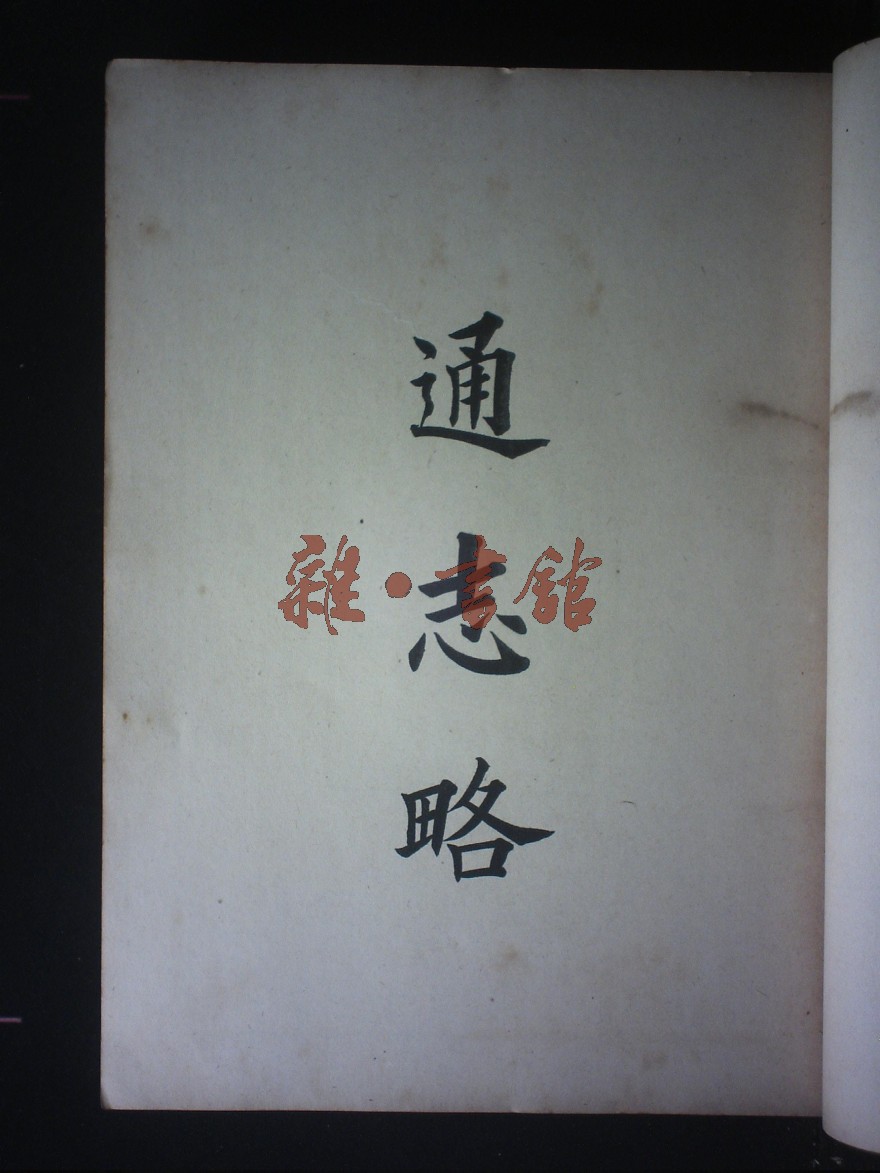 通志略
雜·書館